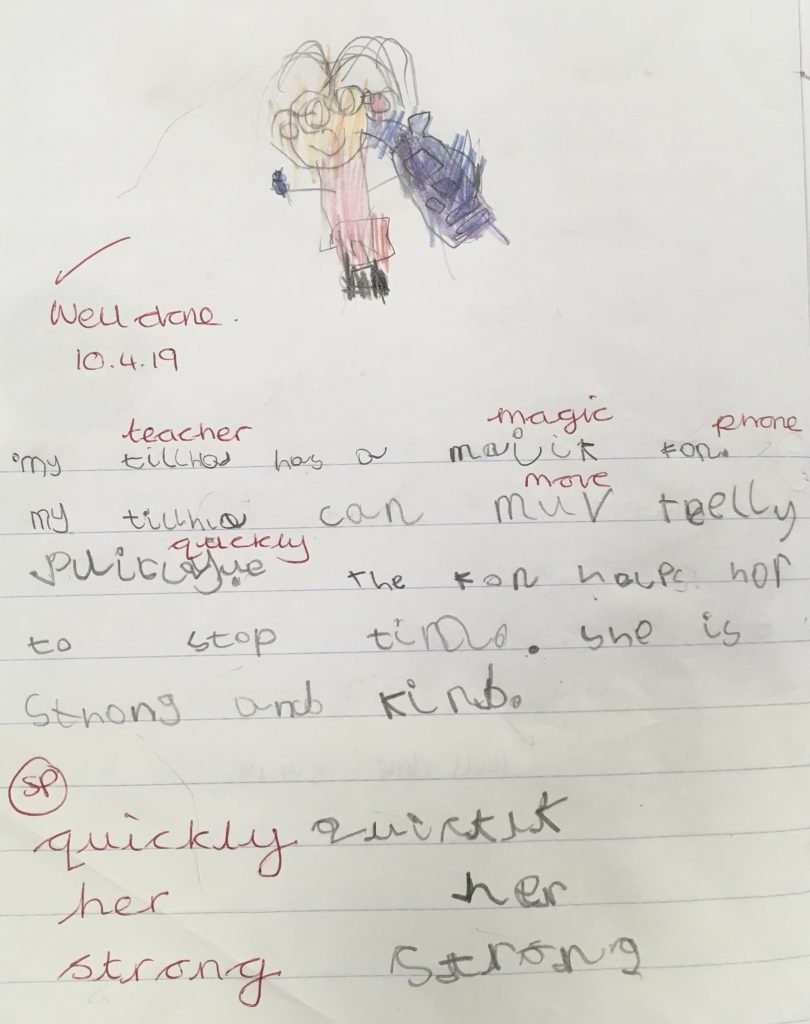 Well done.
10.4.19
teacher magic phone
my tillha has a majik fon.
move
my tillha can muv reelly
quickly
the fon helps her
to stop time. she is
strong and kind.
SP
quickly quicklk
her her
strong strong